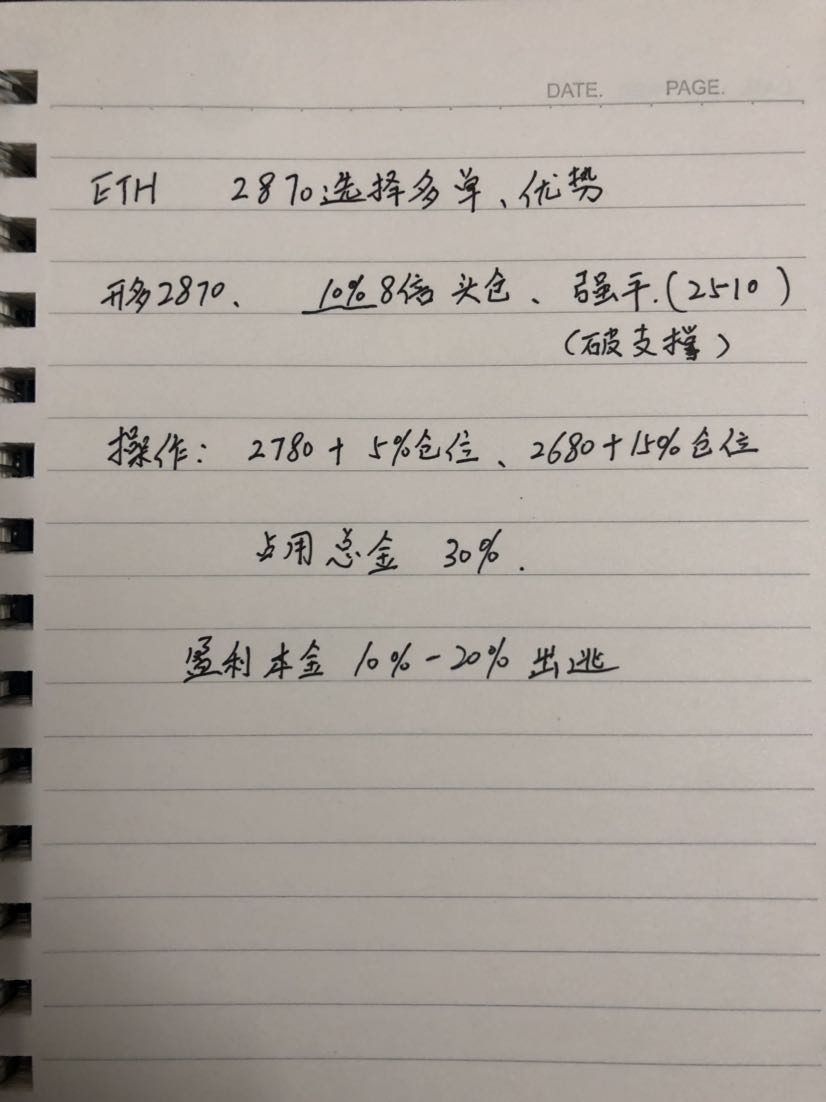 DATE. PAGE.
ETH 2870选择多单、优势
开多2870、 10% 8倍 头仓、 强平.(2510)
(破支撑)
操作: 2780+5%仓位、2680+15%仓位
占用总金 30%.
盈利本金 10%-20% 出逃